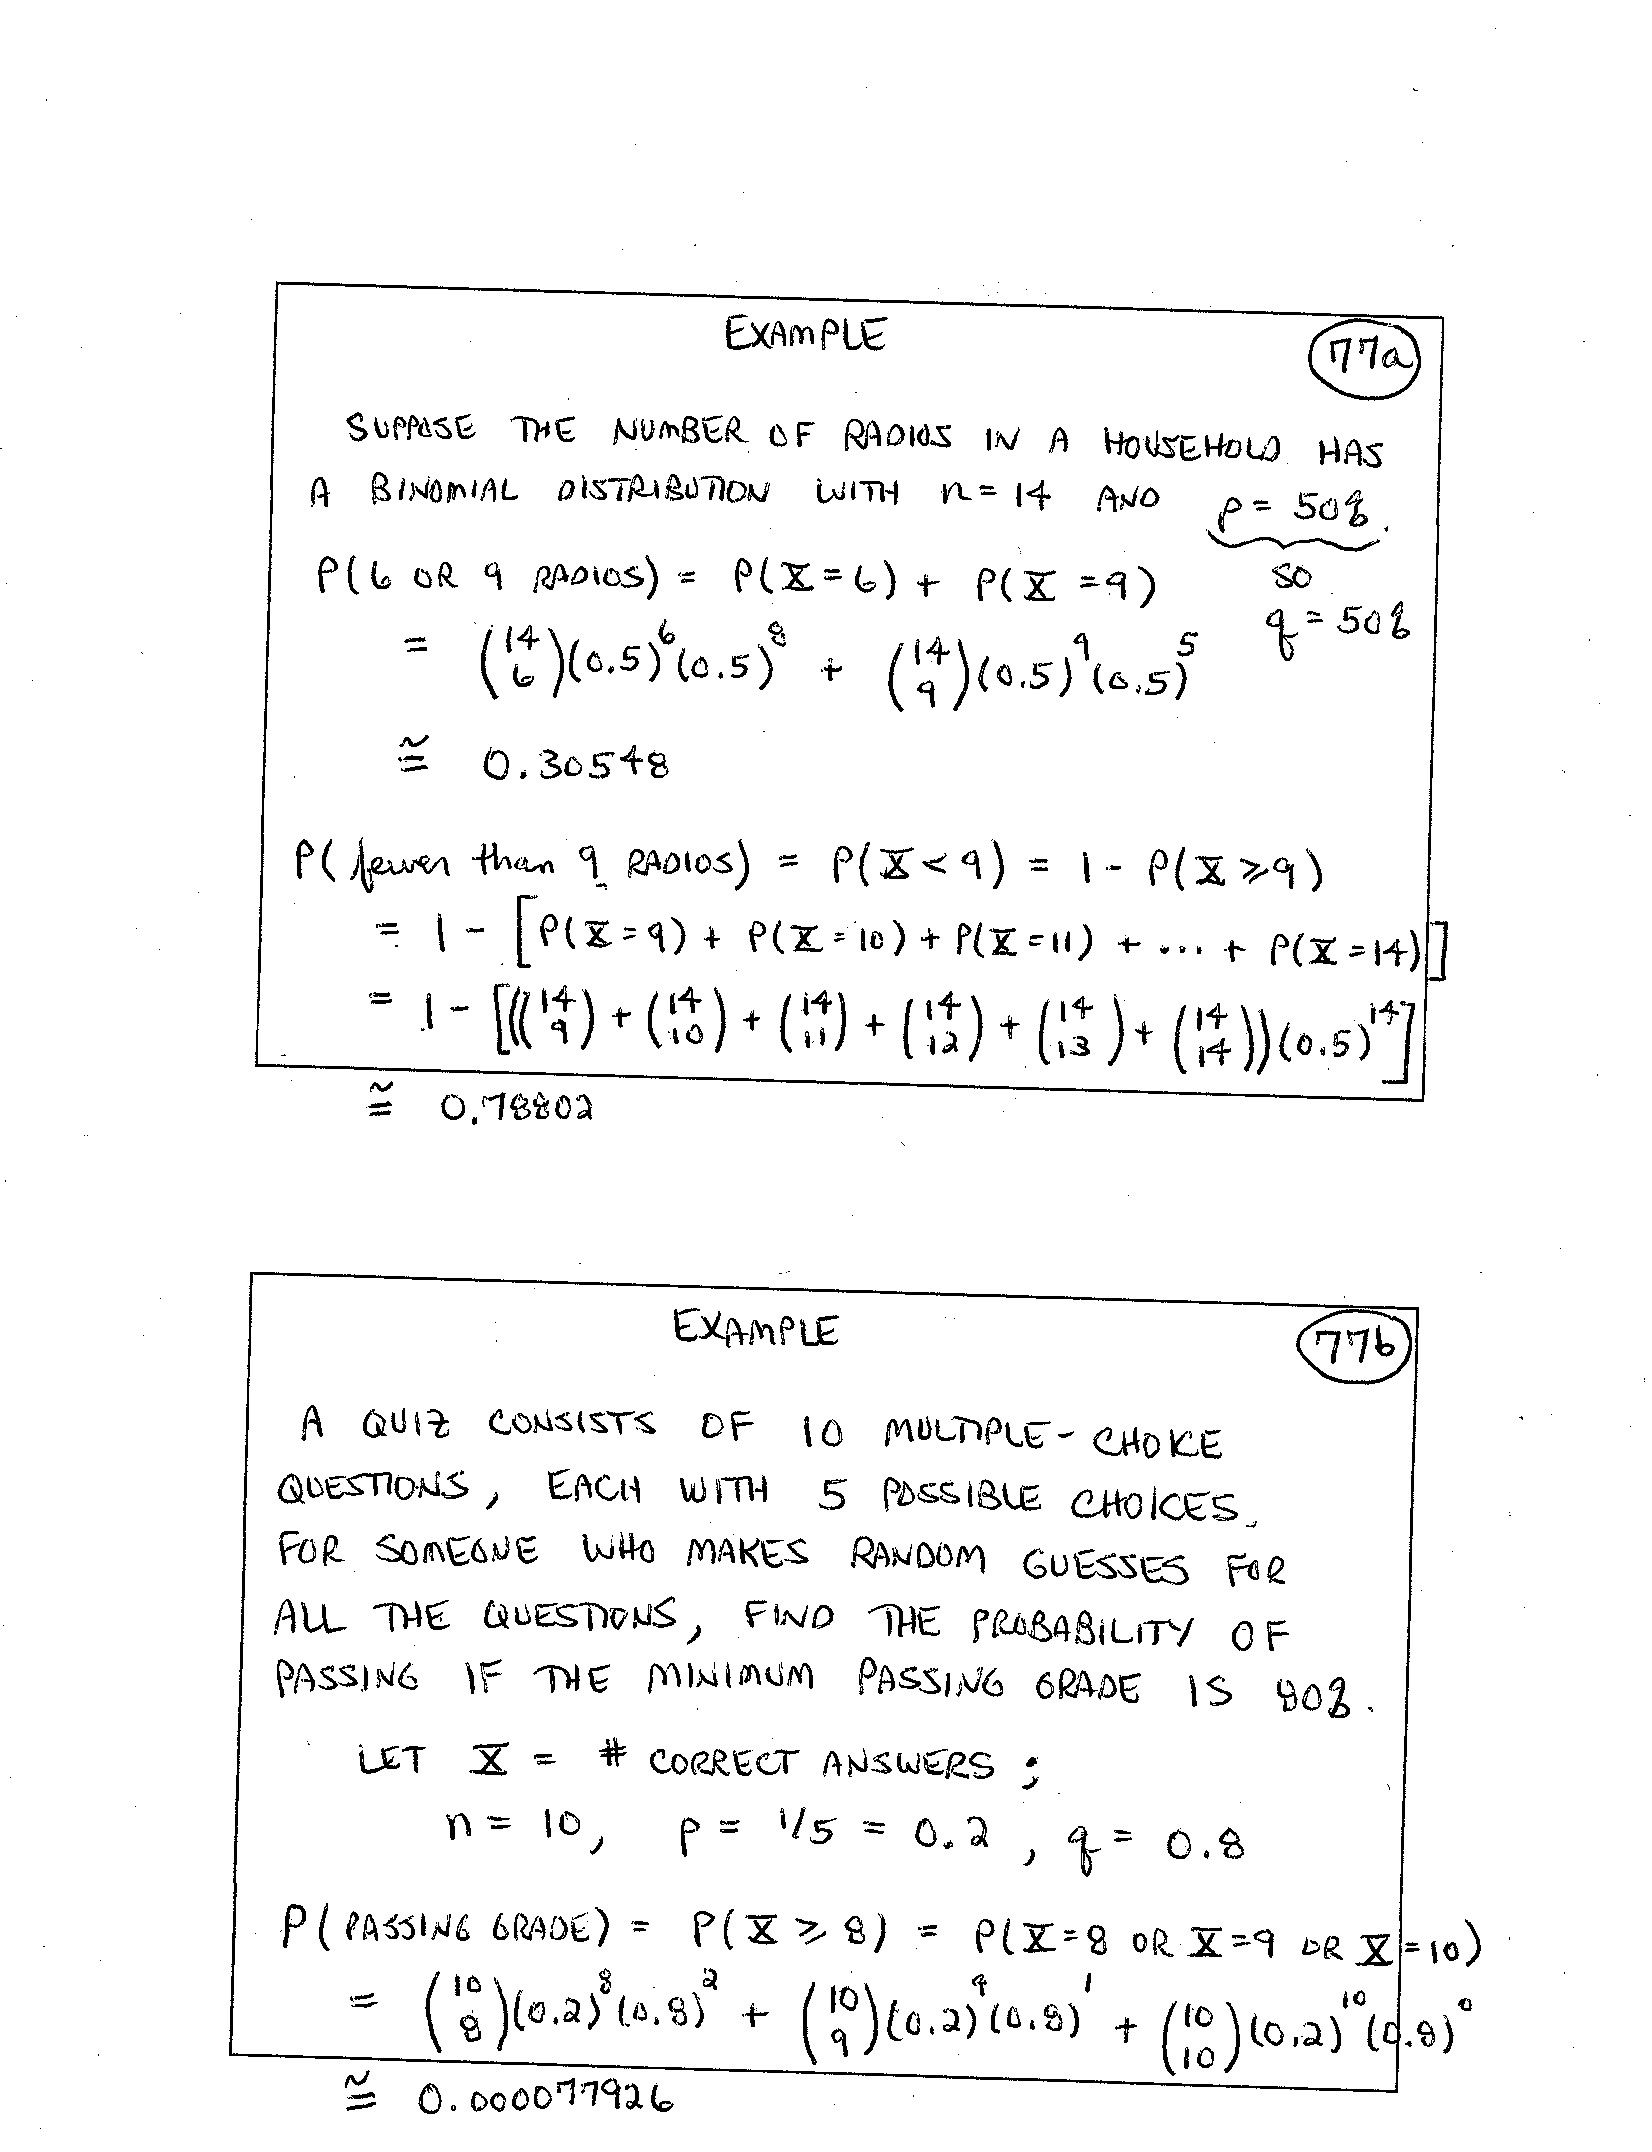 EXAMPLE
77a
SUPPOSE THE NUMBER OF RADIOS IN A HOUSEHOLD HAS
A BINOMIAL DISTRIBUTION WITH n = 14 AND p = 50%.
P(6 OR 9 RADIOS) = P(X = 6) + P(X = 9)
so
q = 50%
= (14 6)(0.5)^6(0.5)^8 + (14 9)(0.5)^9(0.5)^5
≅ 0.30548
P(fewer than 9 RADIOS) = P(X < 9) = 1 - P(X ≥ 9)
= 1 - [P(X = 9) + P(X = 10) + P(X = 11) + ... + P(X = 14)]
= 1 - [((14 9) + (14 10) + (14 11) + (14 12) + (14 13) + (14 14))(0.5)^14]
≅ 0.78802
EXAMPLE
77b
A QUIZ CONSISTS OF 10 MULTIPLE-CHOICE
QUESTIONS, EACH WITH 5 POSSIBLE CHOICES.
FOR SOMEONE WHO MAKES RANDOM GUESSES FOR
ALL THE QUESTIONS, FIND THE PROBABILITY OF
PASSING IF THE MINIMUM PASSING GRADE IS 80%.
LET X = # CORRECT ANSWERS;
n = 10, p = 1/5 = 0.2, q = 0.8
P(PASSING GRADE) = P(X ≥ 8) = P(X = 8 OR X = 9 OR X = 10)
= (10 8)(0.2)^8(0.8)^2 + (10 9)(0.2)^9(0.8)^1 + (10 10)(0.2)^10(0.8)^0
≅ 0.000077926